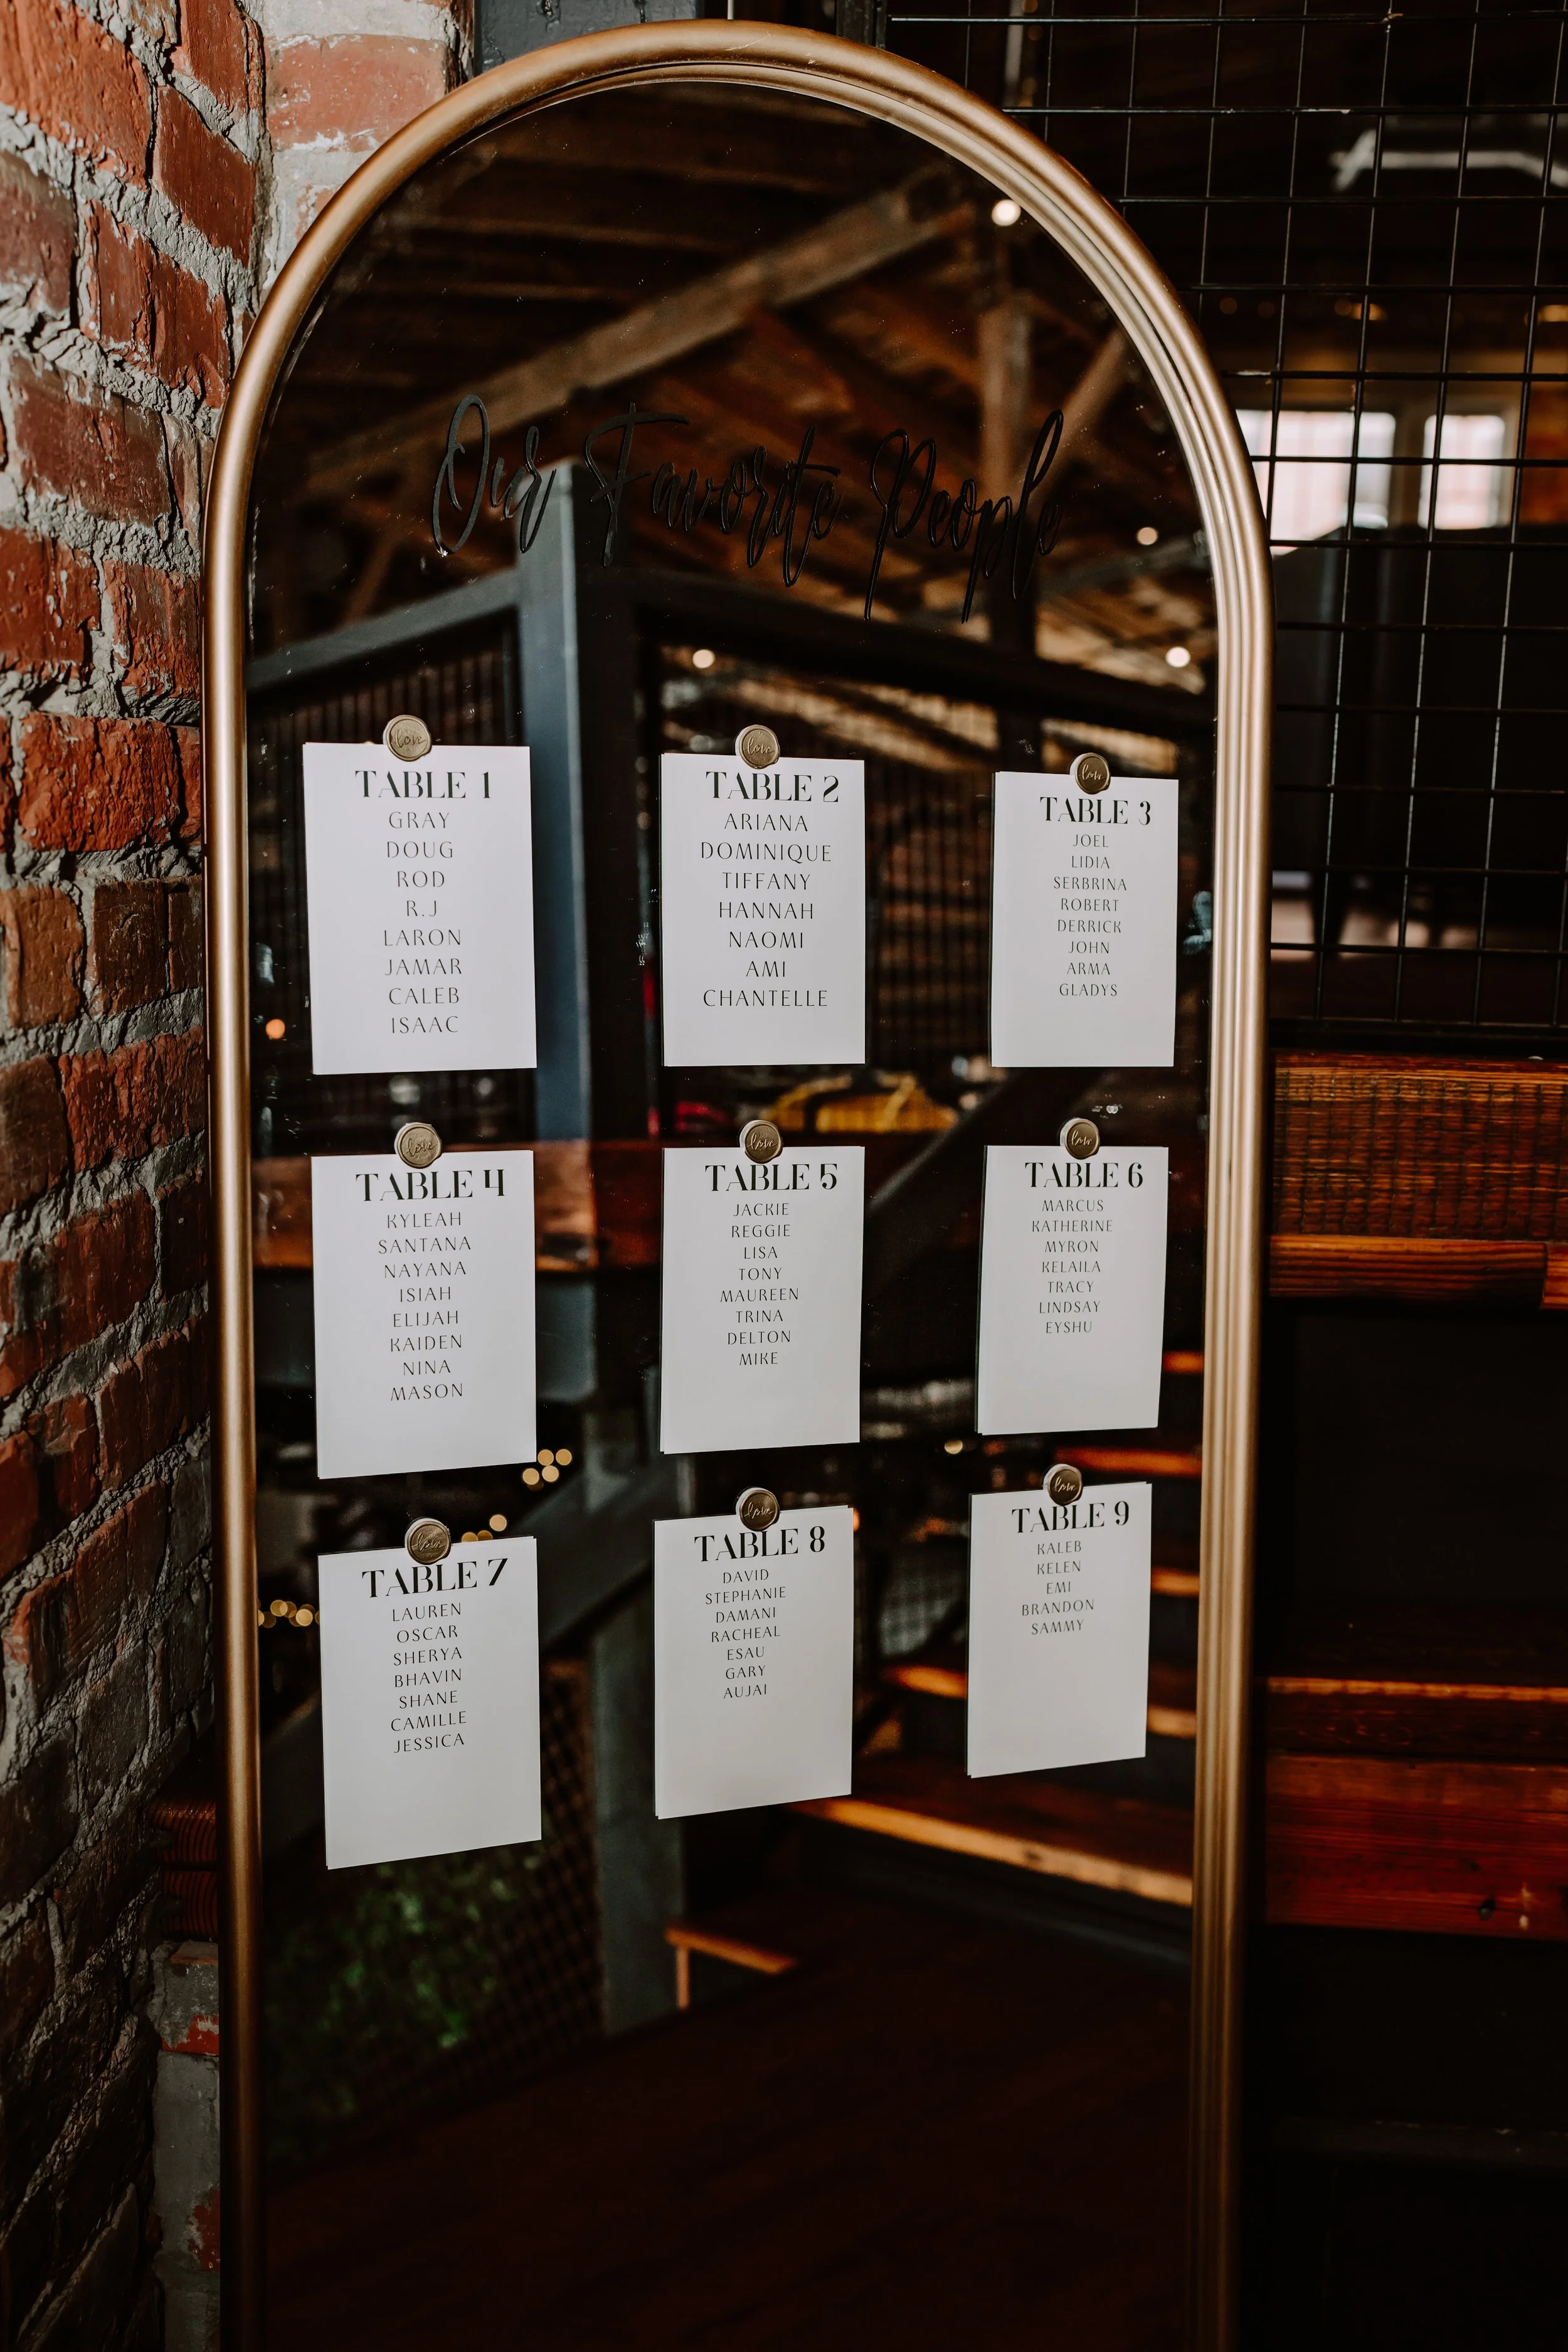 Our Favorite People
love
TABLE 1
GRAY
DOUG
ROD
R.J
LARON
JAMAR
CALEB
ISAAC
love
TABLE 2
ARIANA
DOMINIQUE
TIFFANY
HANNAH
NAOMI
AMI
CHANTELLE
love
TABLE 3
JOEL
LIDIA
SERBRINA
ROBERT
DERRICK
JOHN
ARMA
GLADYS
love
TABLE 4
KYLEAH
SANTANA
NAYANA
ISIAH
ELIJAH
KAIDEN
NINA
MASON
love
TABLE 5
JACKIE
REGGIE
LISA
TONY
MAUREEN
TRINA
DELTON
MIKE
love
TABLE 6
MARCUS
KATHERINE
MYRON
KELAILA
TRACY
LINDSAY
EYSHU
love
TABLE 7
LAUREN
OSCAR
SHERYA
BHAVIN
SHANE
CAMILLE
JESSICA
love
TABLE 8
DAVID
STEPHANIE
DAMANI
RACHEAL
ESAU
GARY
AUJAI
love
TABLE 9
KALEB
KELEN
EMI
BRANDON
SAMMY